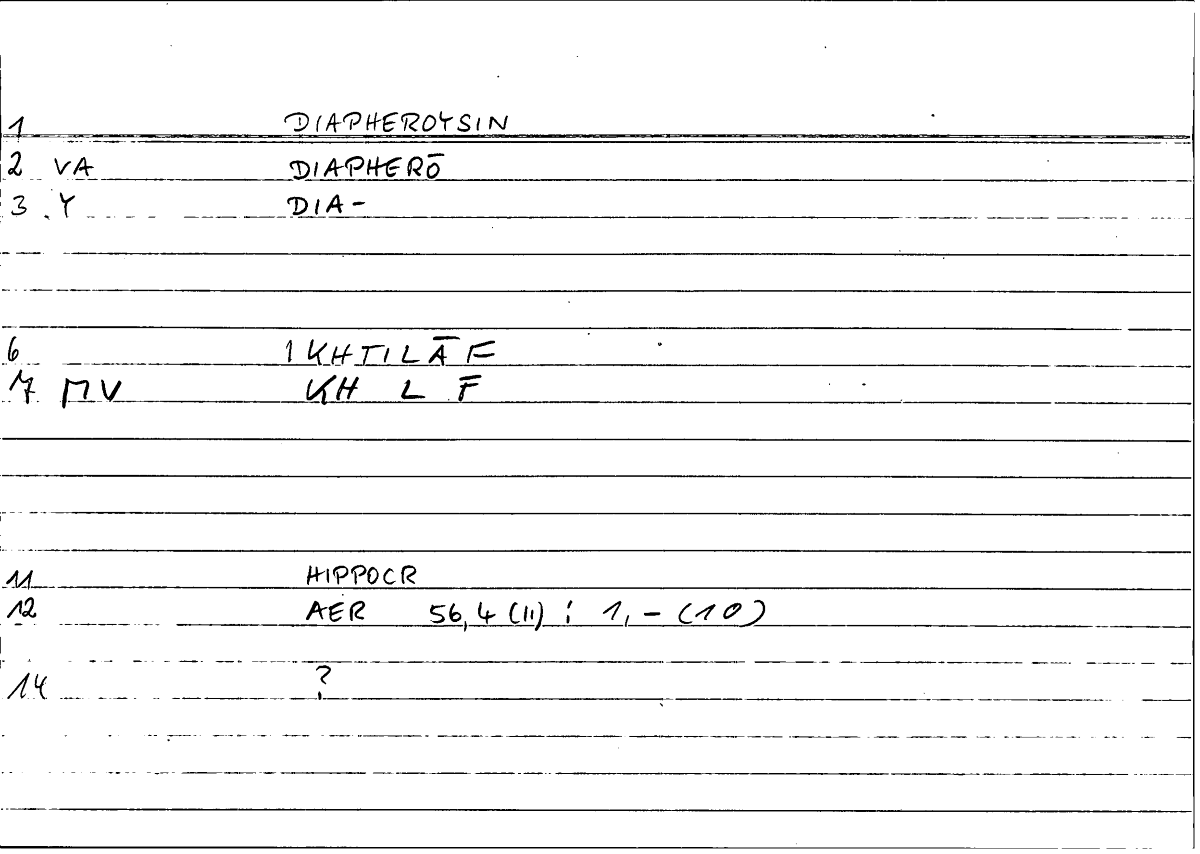 1 DIAPHEROYSIN
2 VA DIAPHERŌ
3 Y DIA-
6 1 KHTILĀF
7 MV KH L F
11 HIPPOCR
12 AER 56,4 (11) : 1, - (10)
14 ?